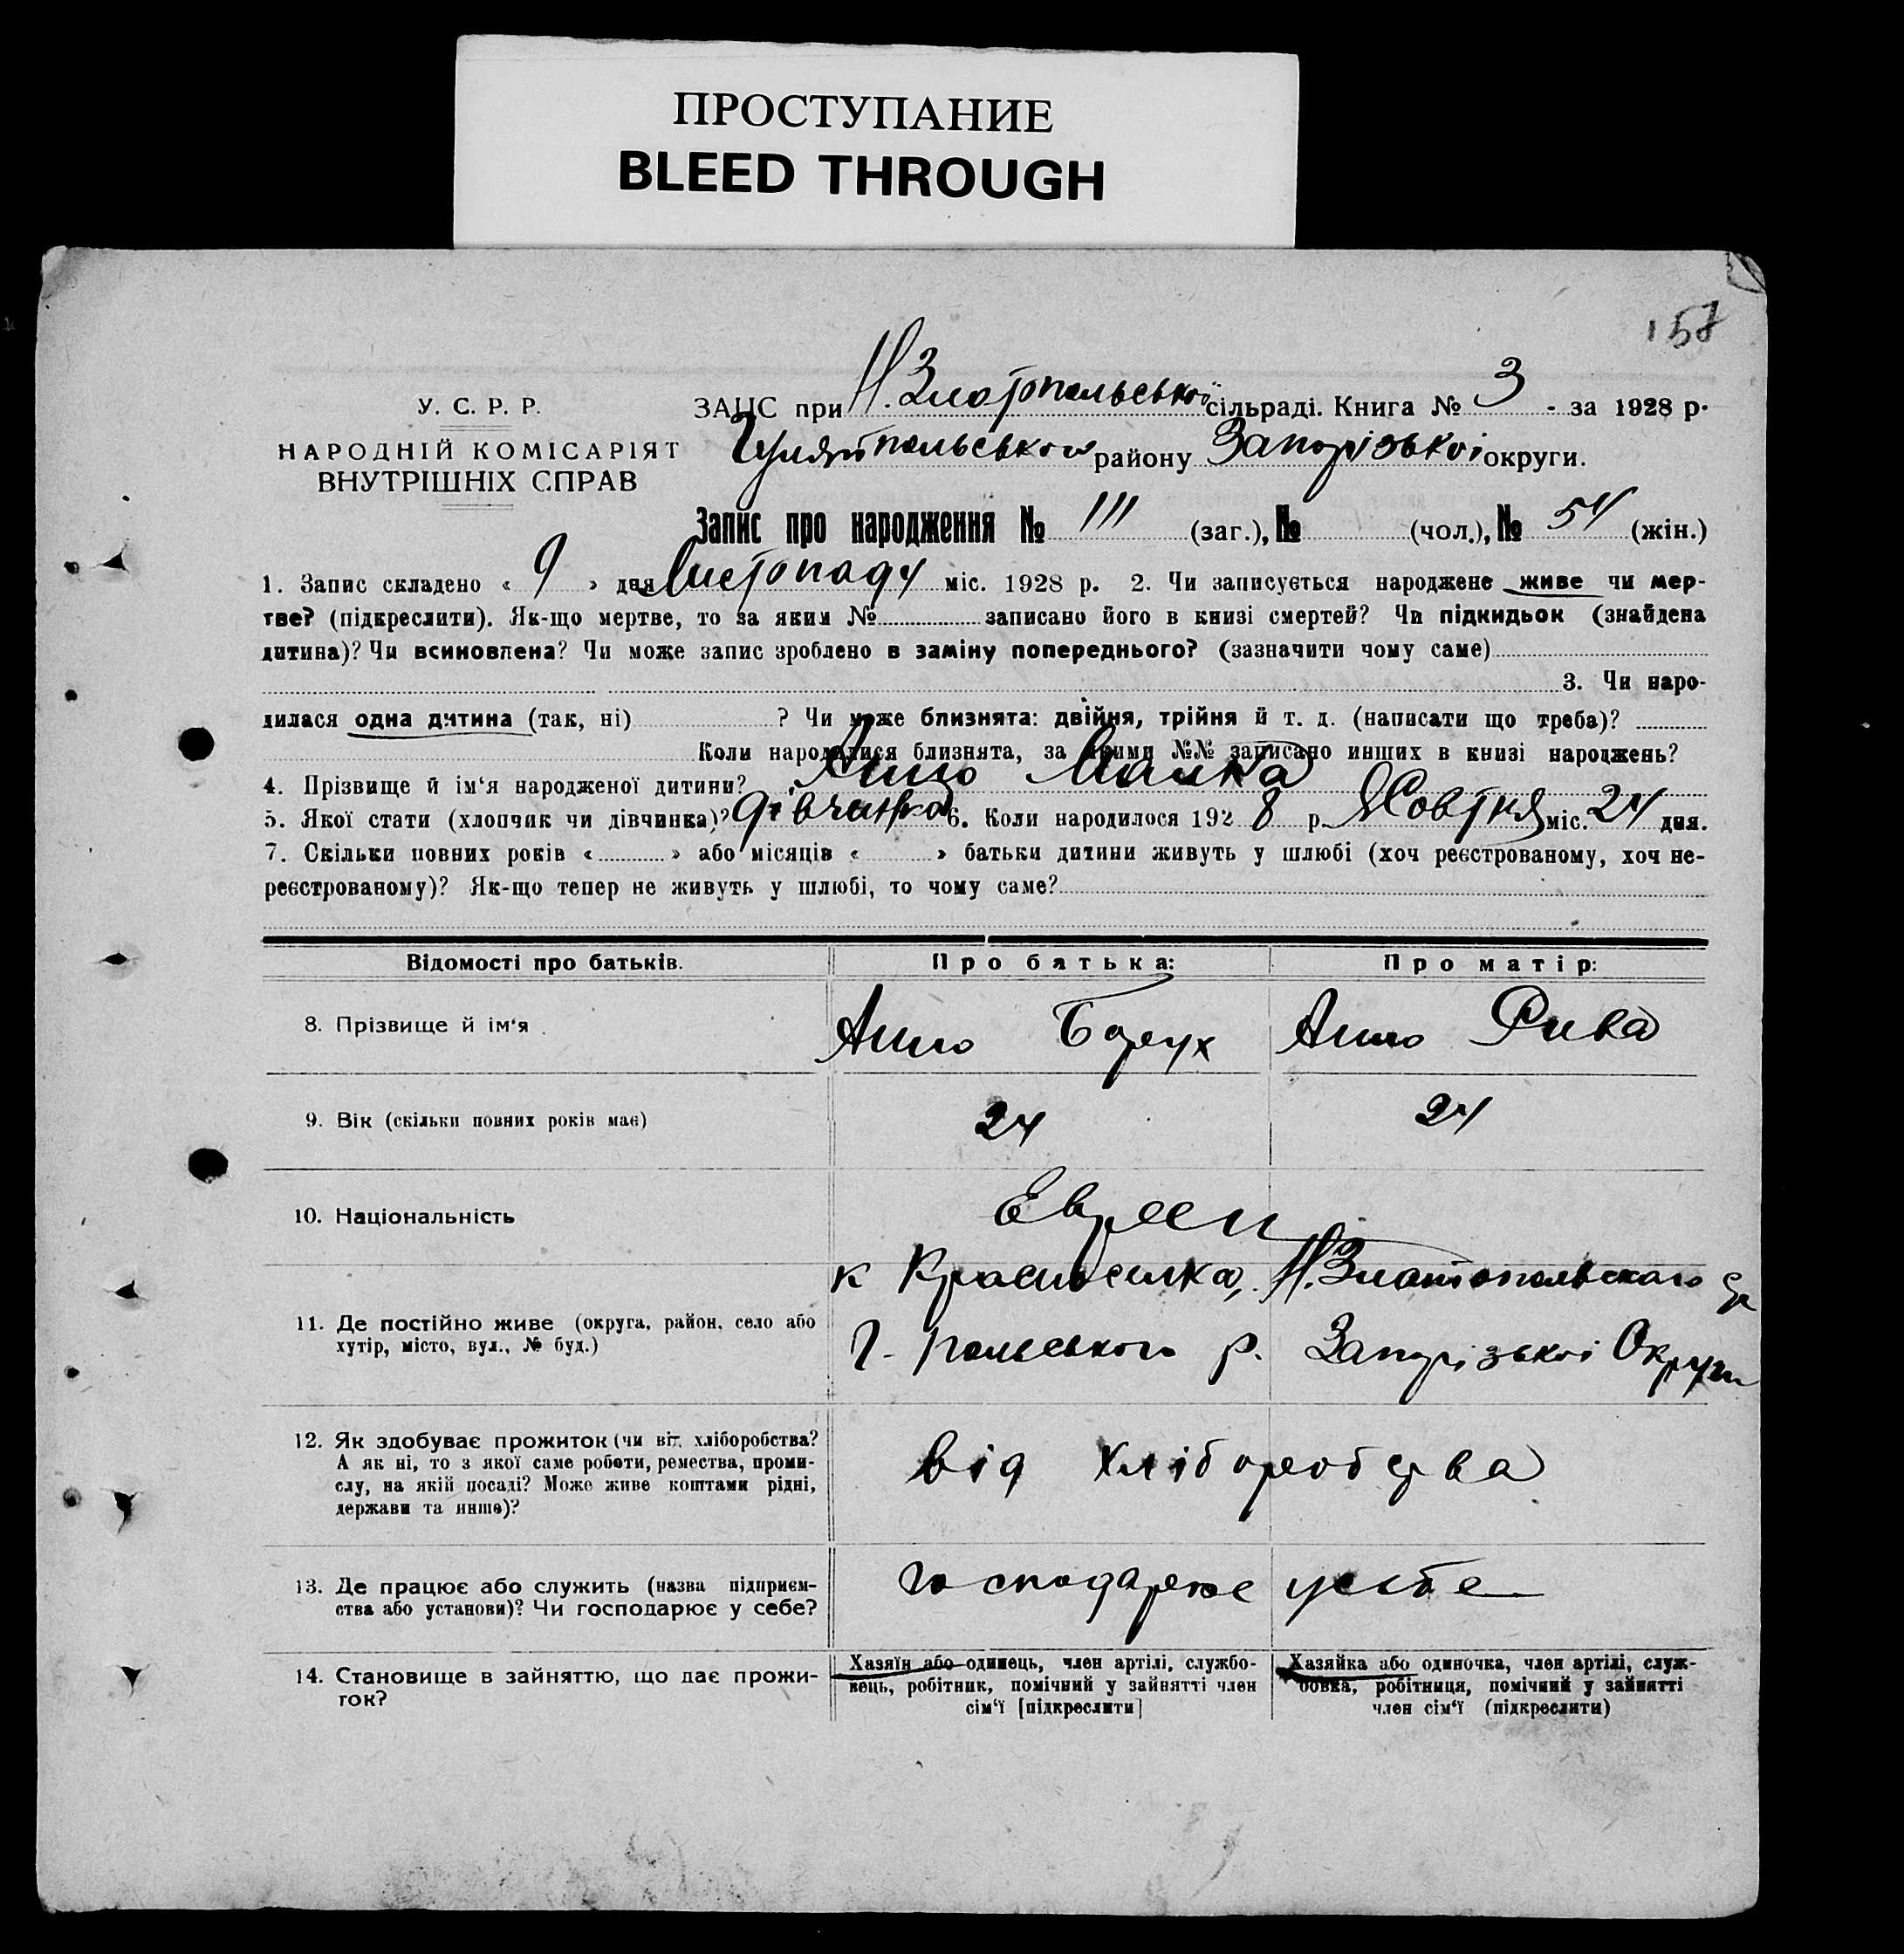 ПРОСТУПАНИЕ
BLEED THROUGH
157
У. С. Р. Р.
НАРОДНІЙ КОМІСАРІЯТ
ВНУТРІШНІХ СПРАВ
ЗАЦС при Н. Златопольської сільраді. Книга № 3 - за 1928 р.
Гуляйпольського району Запорізької округи.
Запис про народження № 111 (заг.), № (чол.), № 54 (жін.)
1. Запис складено « 9 » дня Листопаду міс. 1928 р. 2. Чи записується народжене живе чи мер-
тве? (підкреслити). Як-що мертве, то за яким № записано його в книзі смертей? Чи підкидьок (знайдена
дитина)? Чи всиновлена? Чи може запис зроблено в заміну попереднього? (зазначити чому саме)
3. Чи наро-
дилася одна дитина (так, ні) ? Чи може близнята: двійня, трійня й т. д. (написати що треба)?
Коли народилися близнята, за якими №№ записано инших в книзі народжень?
4. Прізвище й ім‘я народженої дитини? Малка
5. Якої стати (хлопчик чи дівчинка)? дівчинка 6. Коли народилося 1928 р. Жовтня міс. 24 дня.
7. Скільки повних років « » або місяців « » батьки дитини живуть у шлюбі (хоч реєстрованому, хоч не-
реєстрованому)? Як-що тепер не живуть у шлюбі, то чому саме?
Відомості про батьків. Про батька: Про матір:
8. Прізвище й ім‘я Борух Рива
9. Вік (скільки повних років має) 24 24
10. Національність Евреи
к Красноселка, Н. Златопольскаго ср
11. Де постійно живе (округа, район, село або
хутір, місто, вул., № буд.)
Г-польського р. Запорізької Округи
12. Як здобуває прожиток (чи від хліборобства?
А як ні, то з якої саме роботи, ремества, проми-
слу, на якій посаді? Може живе коштами рідні,
держави та инше)?
від хліборобства
13. Де працює або служить (назва підприєм-
ства або установи)? Чи господарює у себе?
господарює у себе
14. Становище в зайняттю, що дає прожи-
ток?
Хазяїн або одинець, член артілі, службо-
вець, робітник, помічний у зайнятті член
сім‘ї [підкреслити]
Хазяйка або одиночка, член артілі, служ-
бовка, робітниця, помічний у зайнятті
член сім‘ї (підкреслити)